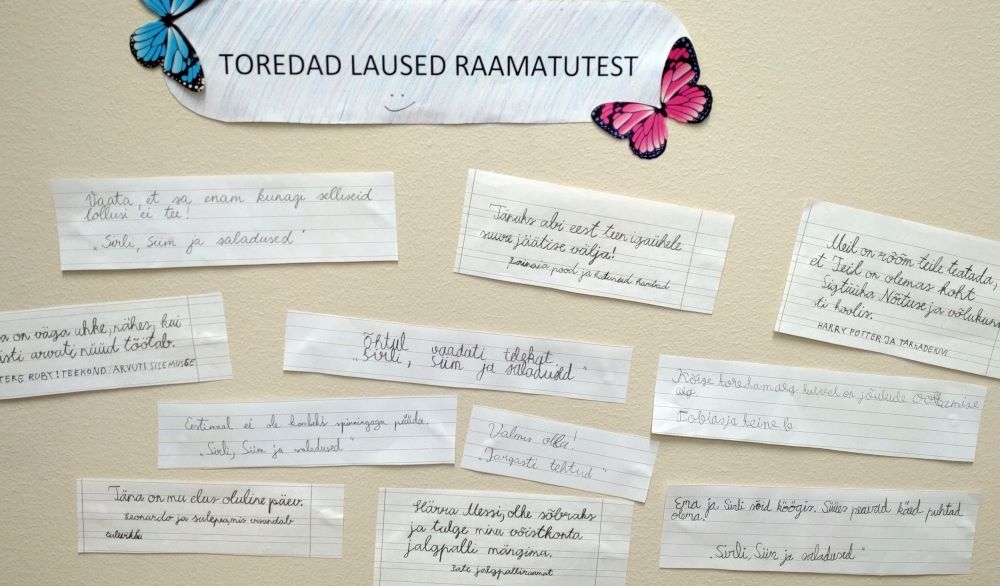 TOREDAD LAUSED RAAMATUTEST
Vaata, et sa enam kunagi selliseid
lollusi ei tee!
„Sirli, Siim ja saladused"
Tänuks abi eest teen igaühele
suure jäätise välja!
pood ja
Meil on rõõm teile teatada,
et Teil on olemas koht
Sigtüüka Nõituse ja võlukuns
ti koolis.
HARRY POTTER JA TARKADEKIVI
a on väga uhke, nähes, kui
isti arvuti nüüd töötab.
TERE RUBY! TEEKOND ARVUTI SISEMUSSE
Õhtul vaadati telekat.
„Sirli, Siim ja saladused"
Kõige toredam aeg talvel on jõulude ootamise
aeg.
Tobias ja teine b
Eestimaal ei ole kombeks spinninguga püüda.
„Sirli, Siim ja saladused"
Valmis olla!
„Targasti tehtud"
Täna on mu elus oluline päev.
Leonardo ja sulepea, mis visandab
tulevikku
Härra Messi, olke sõbraks
ja tulge minu võistkonta
jalgpalli mängima.
Pate jalgpalliraamat
Ema ja Sirli sõid köögis. Süües peavad käed puhtad
olema.
„Sirli, Siim ja saladused"